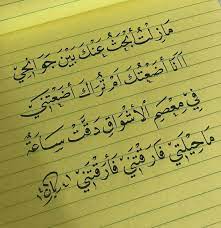 مَا زِلْتُ أَبْحَثُ عَنْكَ بَيْنَ جَوَانِحِي
أَأَنَا أَضَعْتُكَ أَمْ تُرَاكَ أَضَعْتَنِي
فِي مِعْصَمِ الْأَشْوَاقِ دَقَّتْ سَاعَةٌ
مَا حِيلَتِي فَارَقْتَنِي فَأَرَّقْتَنِي